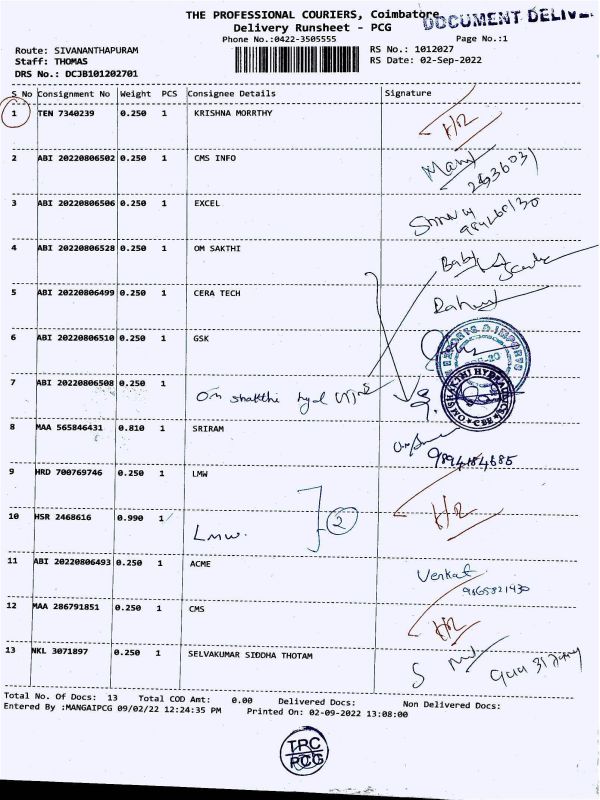 THE PROFESSIONAL COURIERS, Coimbatore
DOCUMENT DELIV
Delivery Runsheet - PCG
Phone No.:0422-3505555
Page No.:1
Route: SIVANANTHAPURAM
RS No.: 1012027
Staff: THOMAS
RS Date: 02-Sep-2022
DRS No.: DCJB101202701
S No Consignment No Weight PCS Consignee Details Signature
1 TEN 7340239 0.250 1 KRISHNA MORRTHY
2 ABI 20220806502 0.250 1 CMS INFO
3 ABI 20220806506 0.250 1 EXCEL
4 ABI 20220806528 0.250 1 OM SAKTHI
5 ABI 20220806499 0.250 1 CERA TECH
6 ABI 20220806510 0.250 1 GSK
7 ABI 20220806508 0.250 1 Om shakthi hyd
8 MAA 565846431 0.810 1 SRIRAM
9894184685
9 HRD 700769746 0.250 1 LMW
10 HSR 2468616 0.990 1 Lmw. 2
11 ABI 20220806493 0.250 1 ACME Venkat
9865821430
12 MAA 286791851 0.250 1 CMS
13 NKL 3071897 0.250 1 SELVAKUMAR SIDDHA THOTAM
Total No. Of Docs: 13 Total COD Amt: 0.00 Delivered Docs: Non Delivered Docs:
Entered By :MANGAIPCG 09/02/22 12:24:35 PM Printed On: 02-09-2022 13:08:00
TPC
PCG